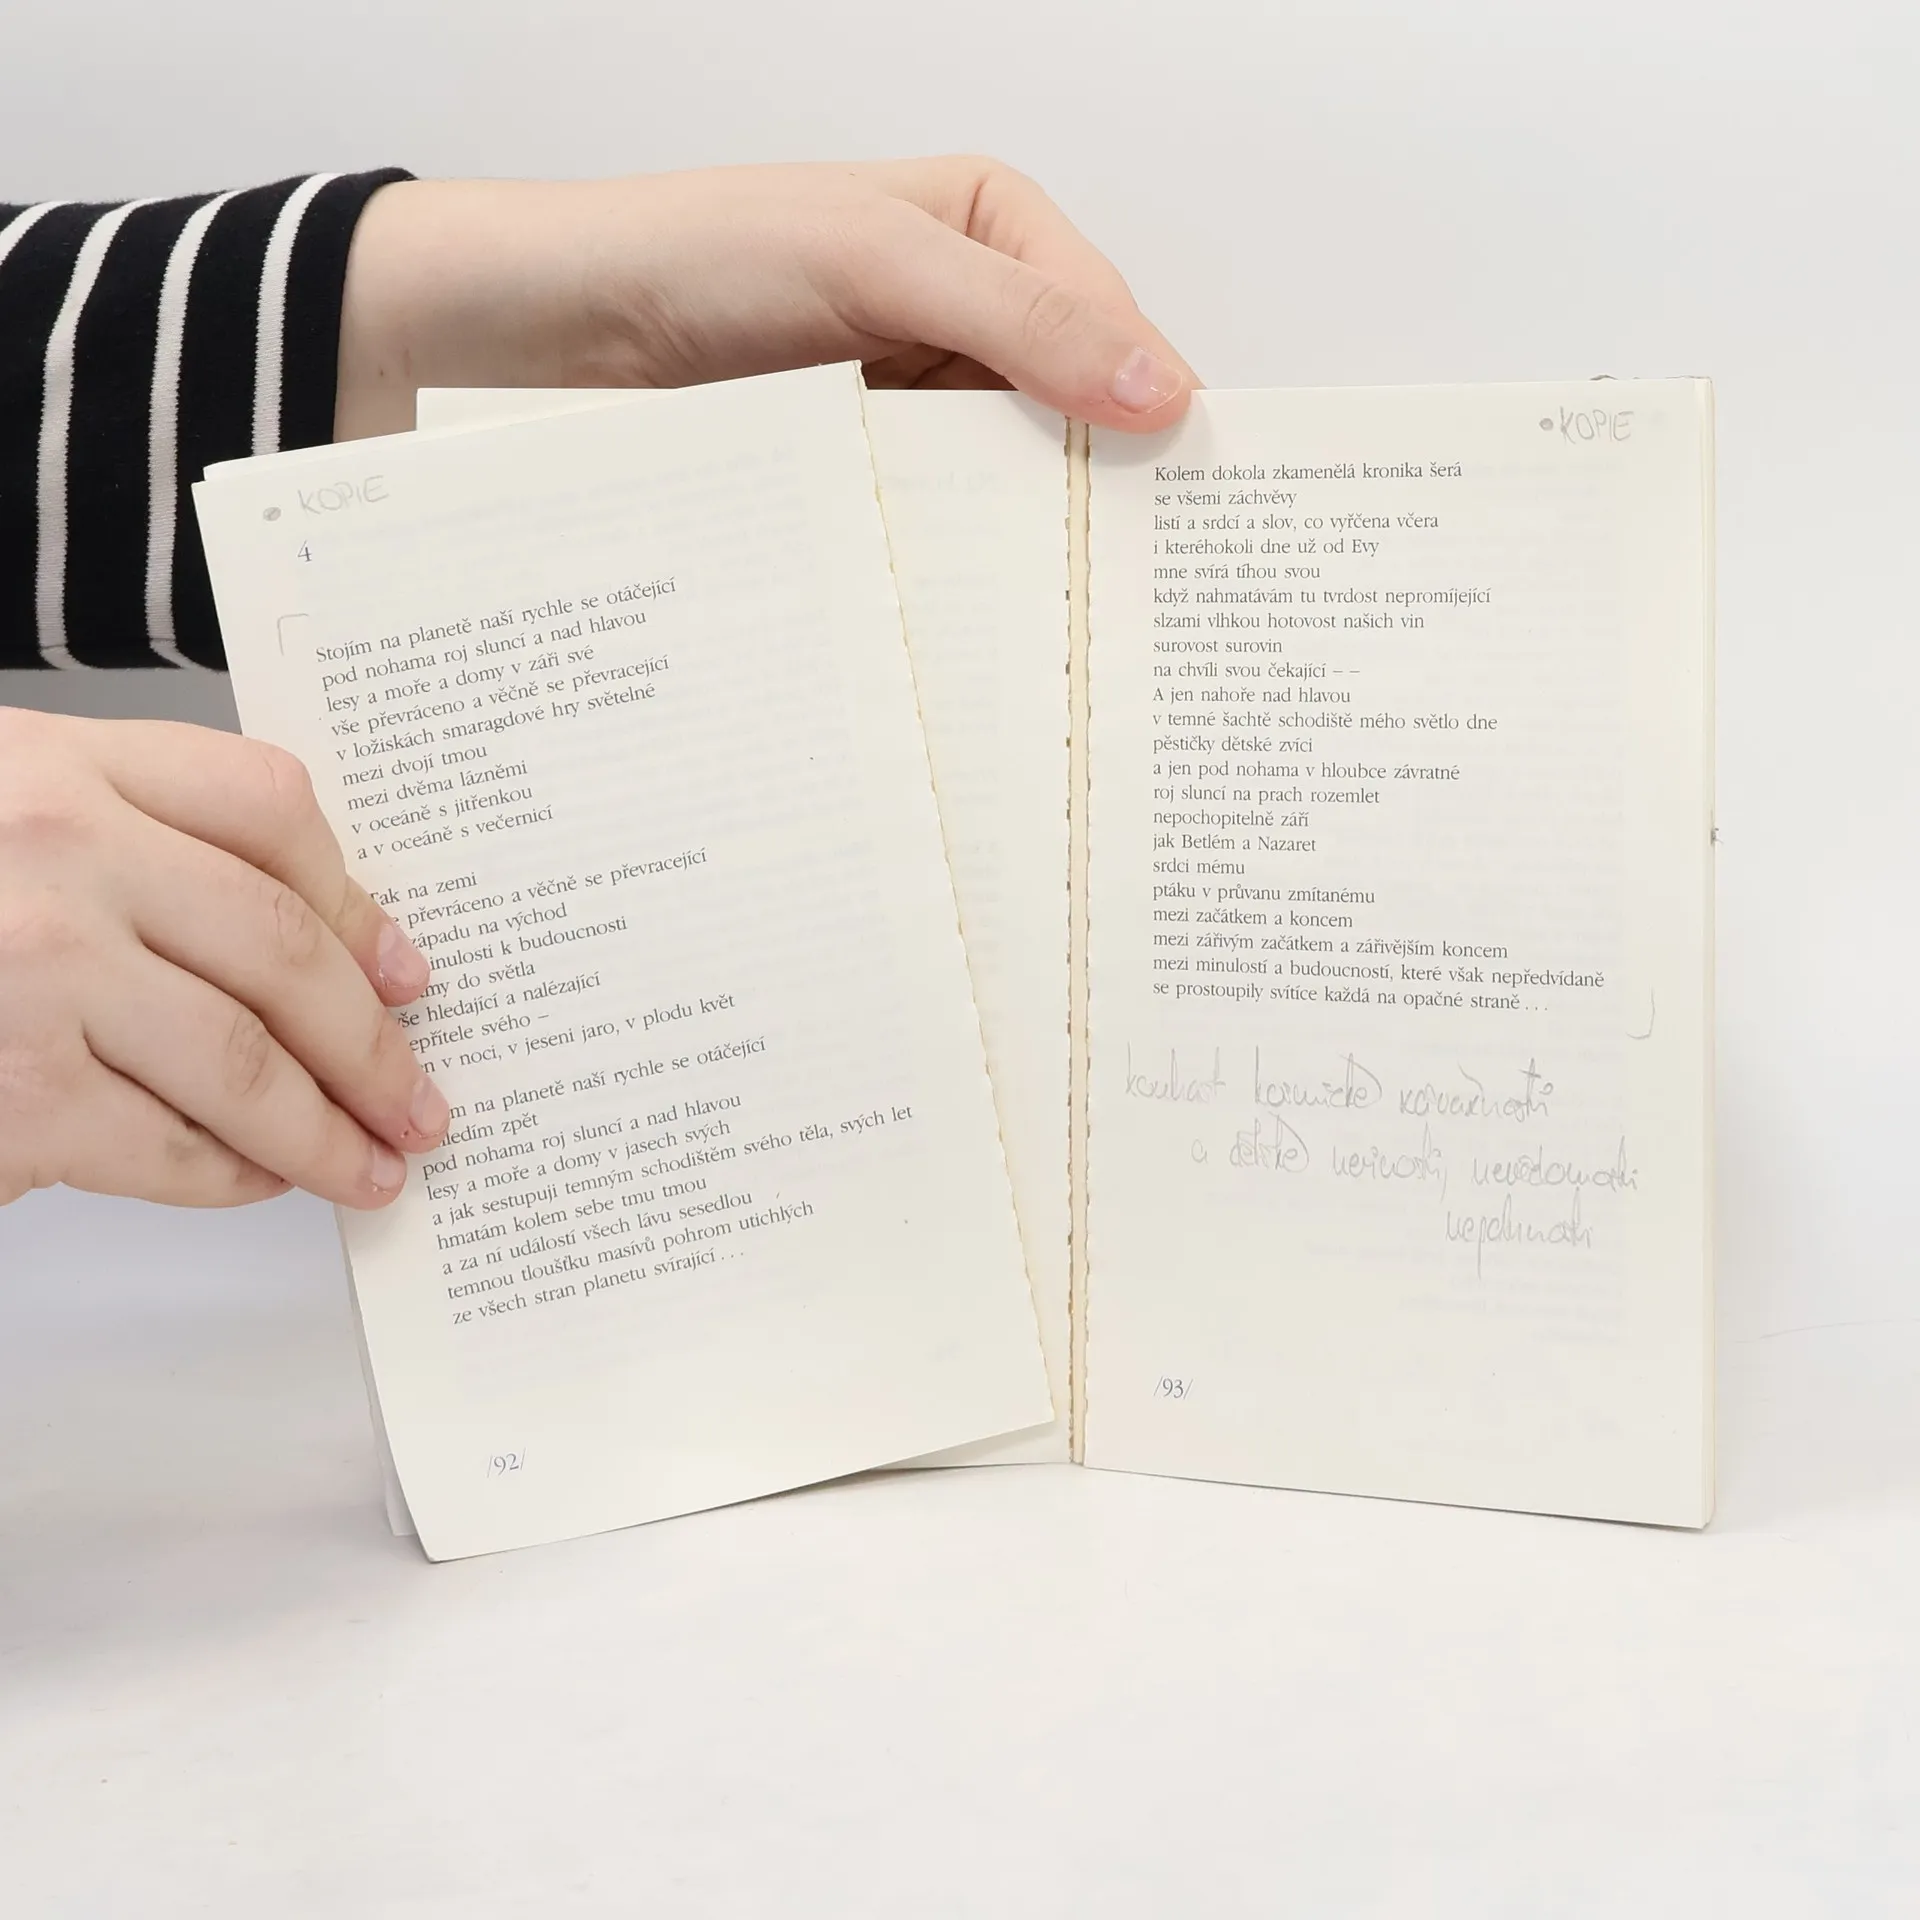 KOPIE
4
Stojím na planetě naší rychle se otáčející
pod nohama roj sluncí a nad hlavou
lesy a moře a domy v záři své
vše převráceno a věčně se převracející
v ložiskách smaragdové hry světelné
mezi dvojí tmou
mezi dvěma lázněmi
v oceáně s jitřenkou
a v oceáně s večernicí
Tak na zemi
převráceno a věčně se převracející
západu na východ
minulosti k budoucnosti
tmy do světla
vše hledající a nalézající
nepřítele svého –
v noci, v jeseni jaro, v plodu květ
na planetě naší rychle se otáčející
hledím zpět
pod nohama roj sluncí a nad hlavou
lesy a moře a domy v jasech svých
a jak sestupuji temným schodištěm svého těla, svých let
hmatám kolem sebe tmu tmou
a za ní událostí všech lávu sesedlou
temnou tloušťku masívů pohrom utichlých
ze všech stran planetu svírající . . .
/92/
KOPIE
Kolem dokola zkamenělá kronika šerá
se všemi záchvěvy
listí a srdcí a slov, co vyřčena včera
i kteréhokoli dne už od Evy
mne svírá tíhou svou
když nahmatávám tu tvrdost nepromíjející
slzami vlhkou hotovost našich vin
surovost surovin
na chvíli svou čekající – –
A jen nahoře nad hlavou
v temné šachtě schodiště mého světlo dne
pěstičky dětské zvíci
a jen pod nohama v hloubce závratné
roj sluncí na prach rozemlet
nepochopitelně září
jak Betlém a Nazaret
srdci mému
ptáku v průvanu zmítanému
mezi začátkem a koncem
mezi zářivým začátkem a zářivějším koncem
mezi minulostí a budoucností, které však nepředvídaně
se prostoupily svítíce každá na opačné straně . . .
a dětské nevinosti, nevědomosti
/93/